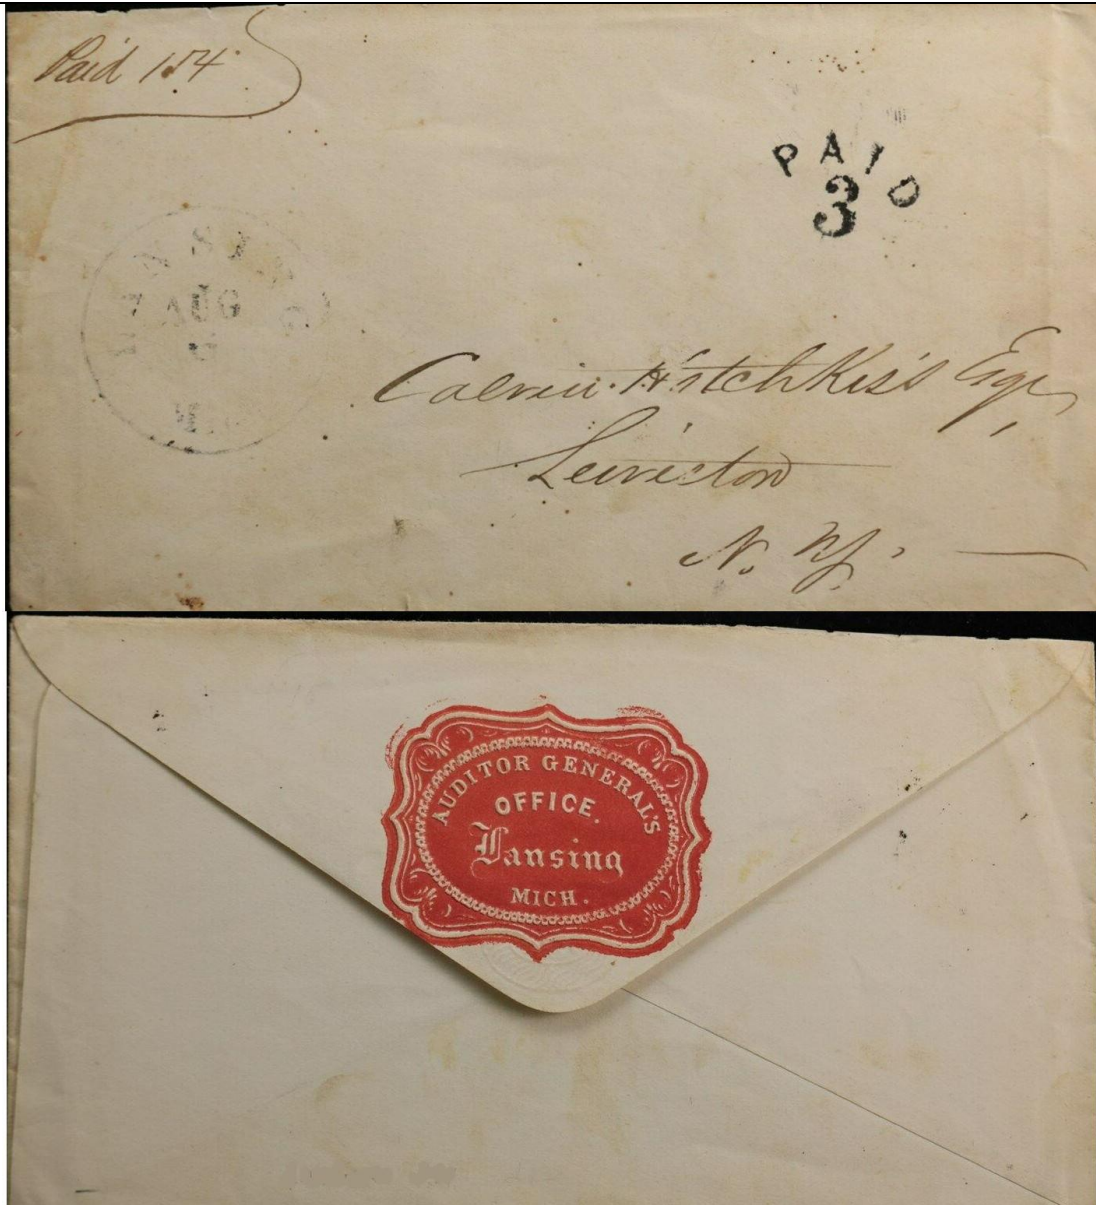 Paid 154
PAID
3
LANSING
AUG
MIC
Calvin Hotchkiss Esqr,
Lewiston
N. Y.
AUDITOR GENERAL'S
OFFICE.
Lansing
MICH.